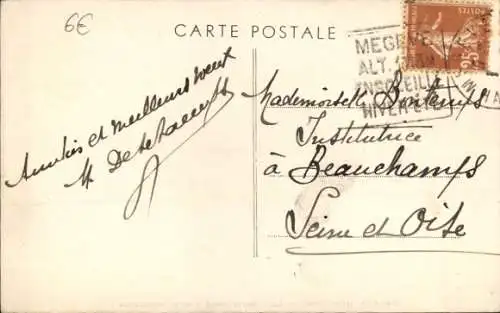 6€
CARTE POSTALE
POSTES
25c
MEGEVE
ALT.
ENSOLEILLE
HIVER-ETE
Amitiés et meilleurs vœux
M
Mademoiselle Bontemps
Institutrice
à Beauchamps
Seine et Oise